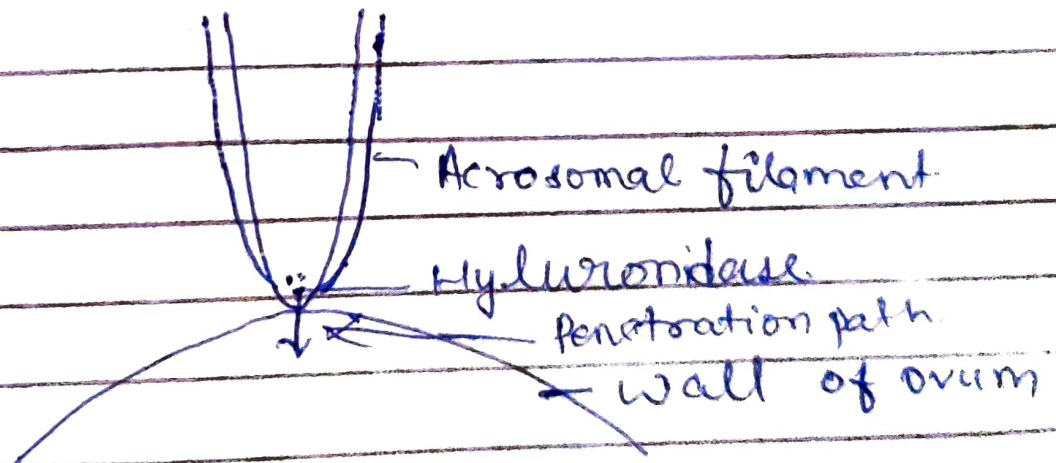 Acrosomal filament
Hyluronidase
Penetration path
Wall of ovum